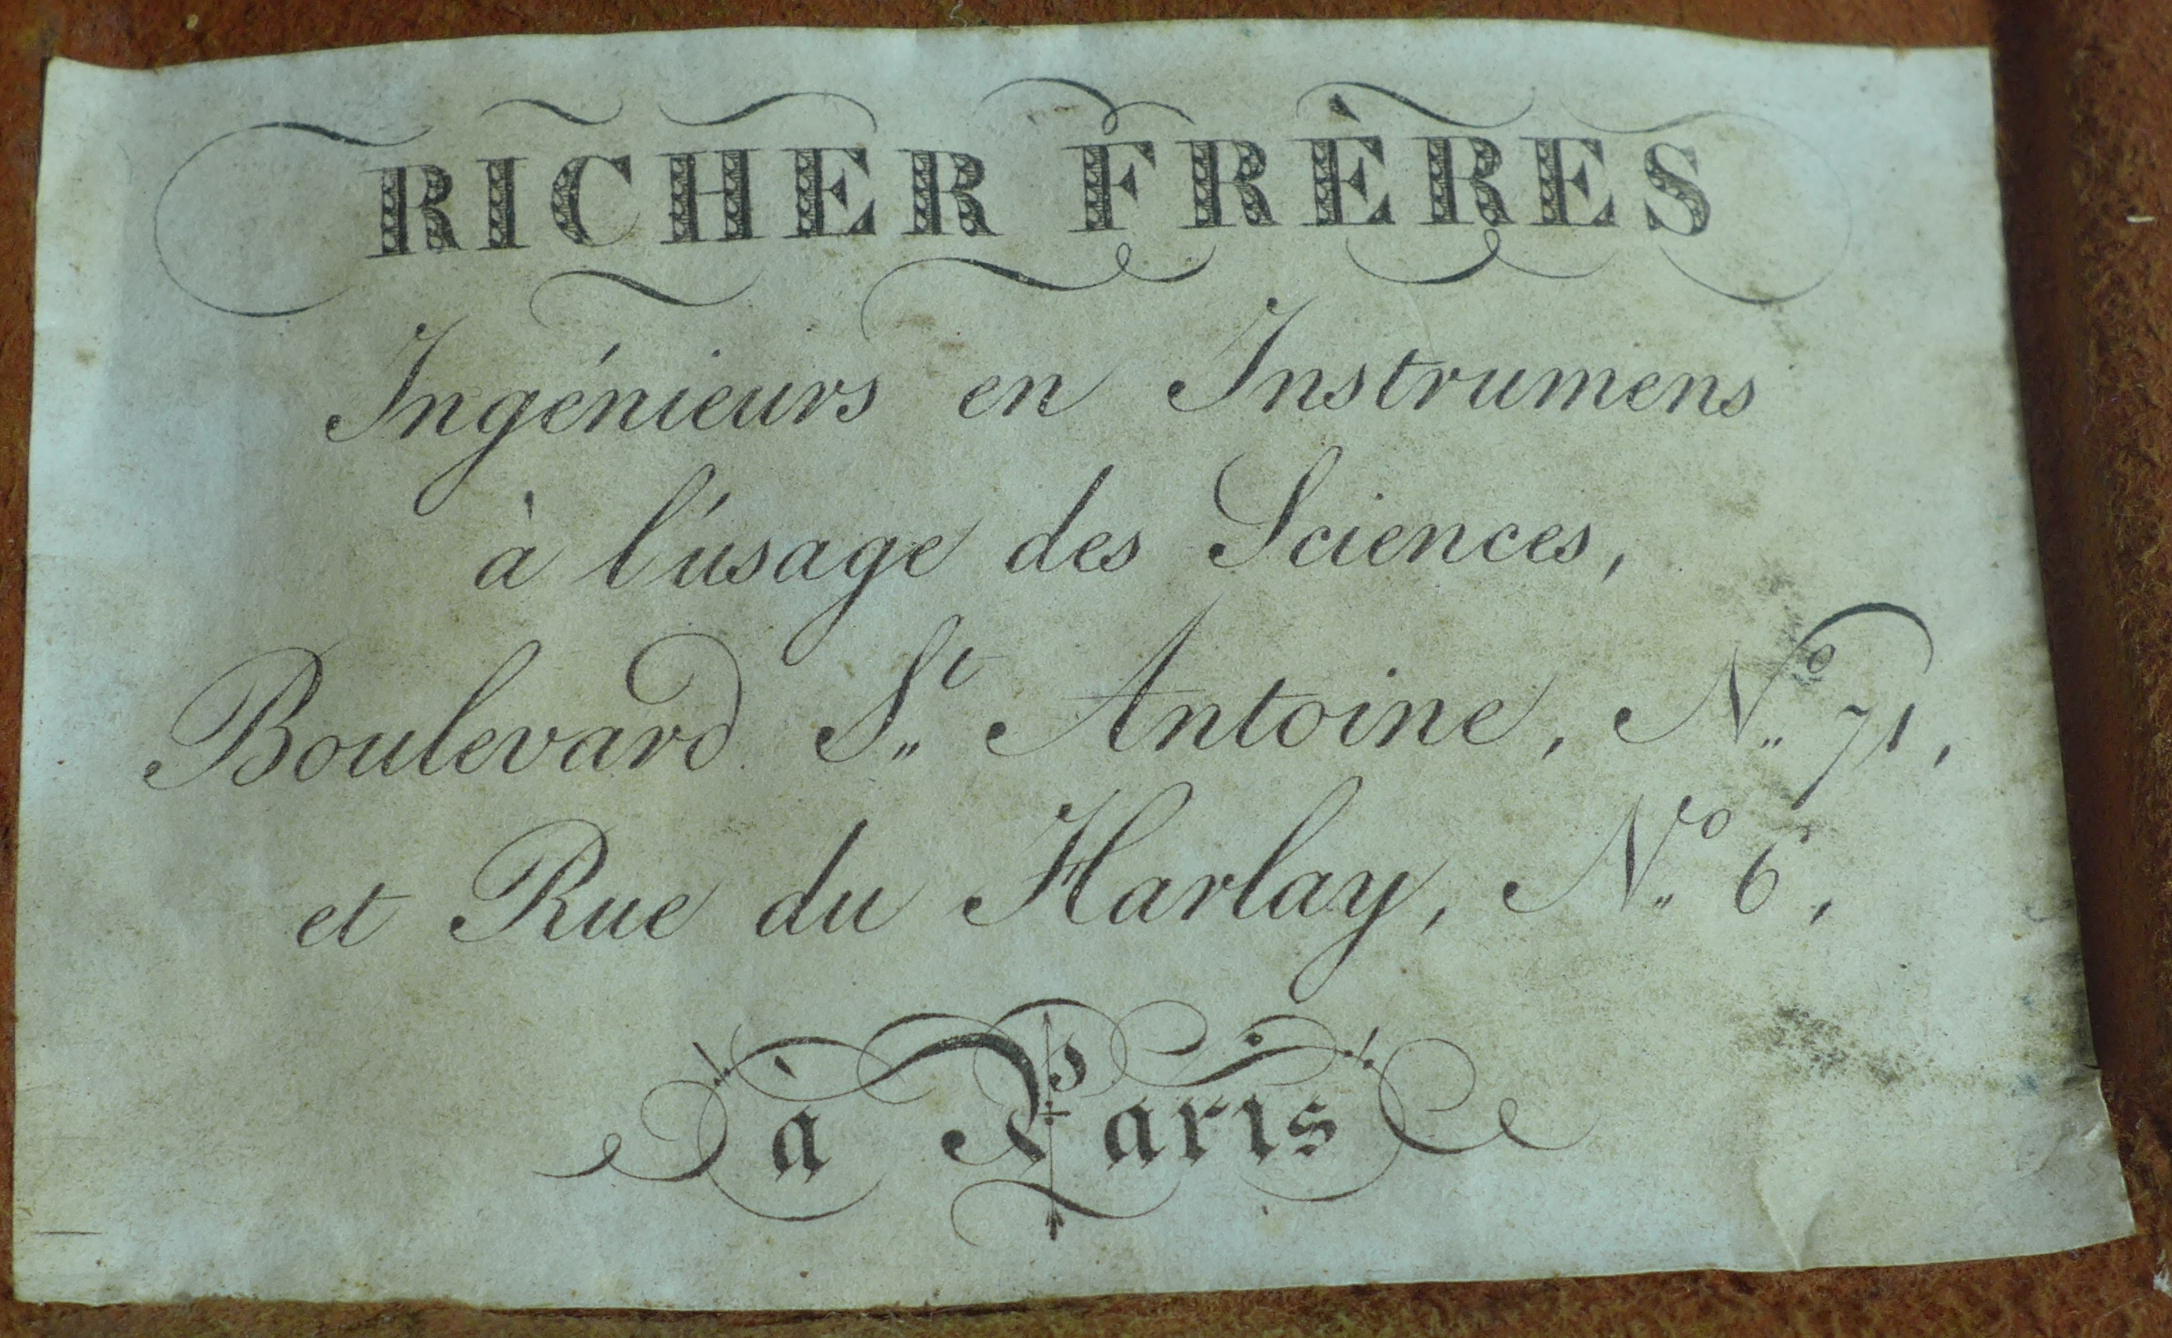 RICHER FRÈRES
Ingénieurs en Instrumens
à l'usage des Sciences,
Boulevard St. Antoine, No. 71,
et Rue du Harlay, No. 6,
à Paris